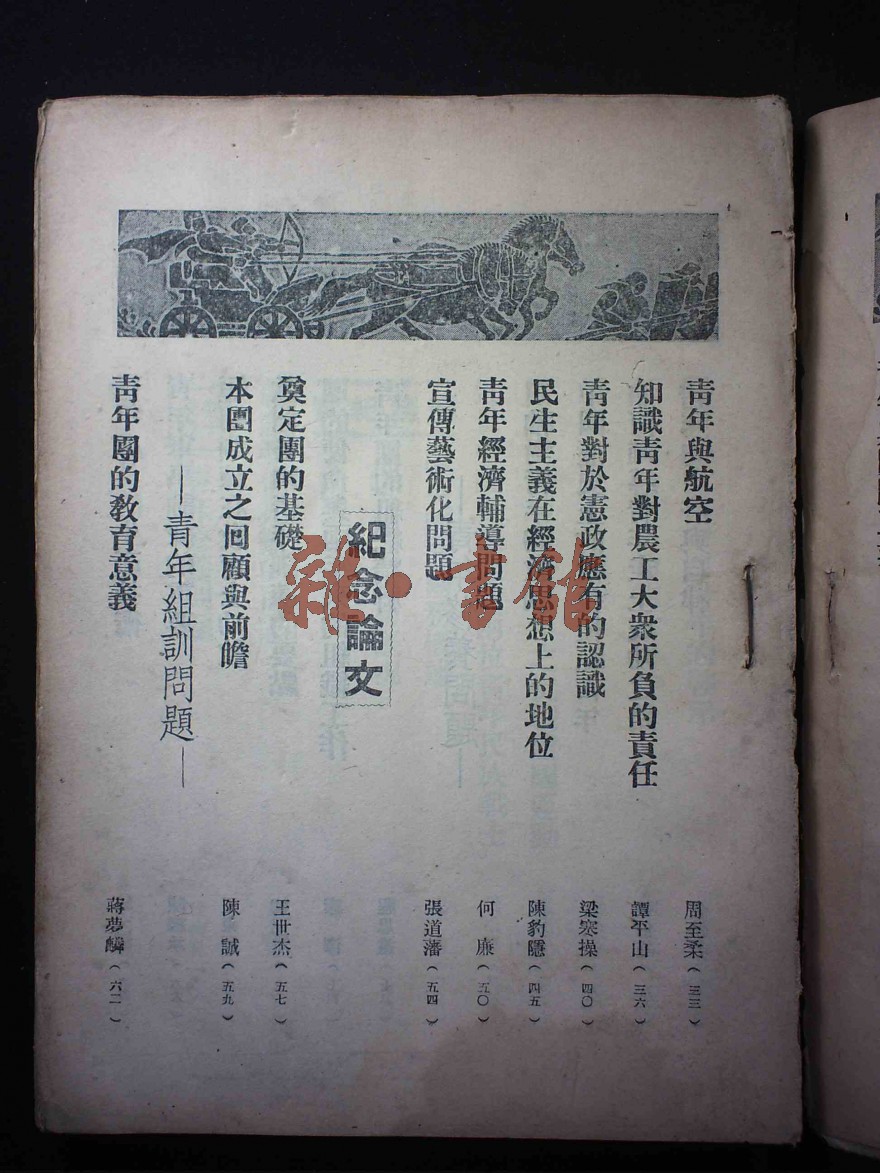 青年與航空 周至柔（三三）
知識青年對農工大衆所負的責任 譚平山（三六）
青年對於憲政應有的認識 梁寒操（四〇）
民生主義在經濟思想上的地位 陳豹隱（四五）
青年經濟輔導問題 何廉（五〇）
宣傳藝術化問題 張道藩（五四）
紀念論文
奠定團的基礎 王世杰（五七）
本團成立之回顧與前瞻 陳誠（五九）
—青年組訓問題—
青年團的教育意義 蔣夢麟（六二）
雜·書館